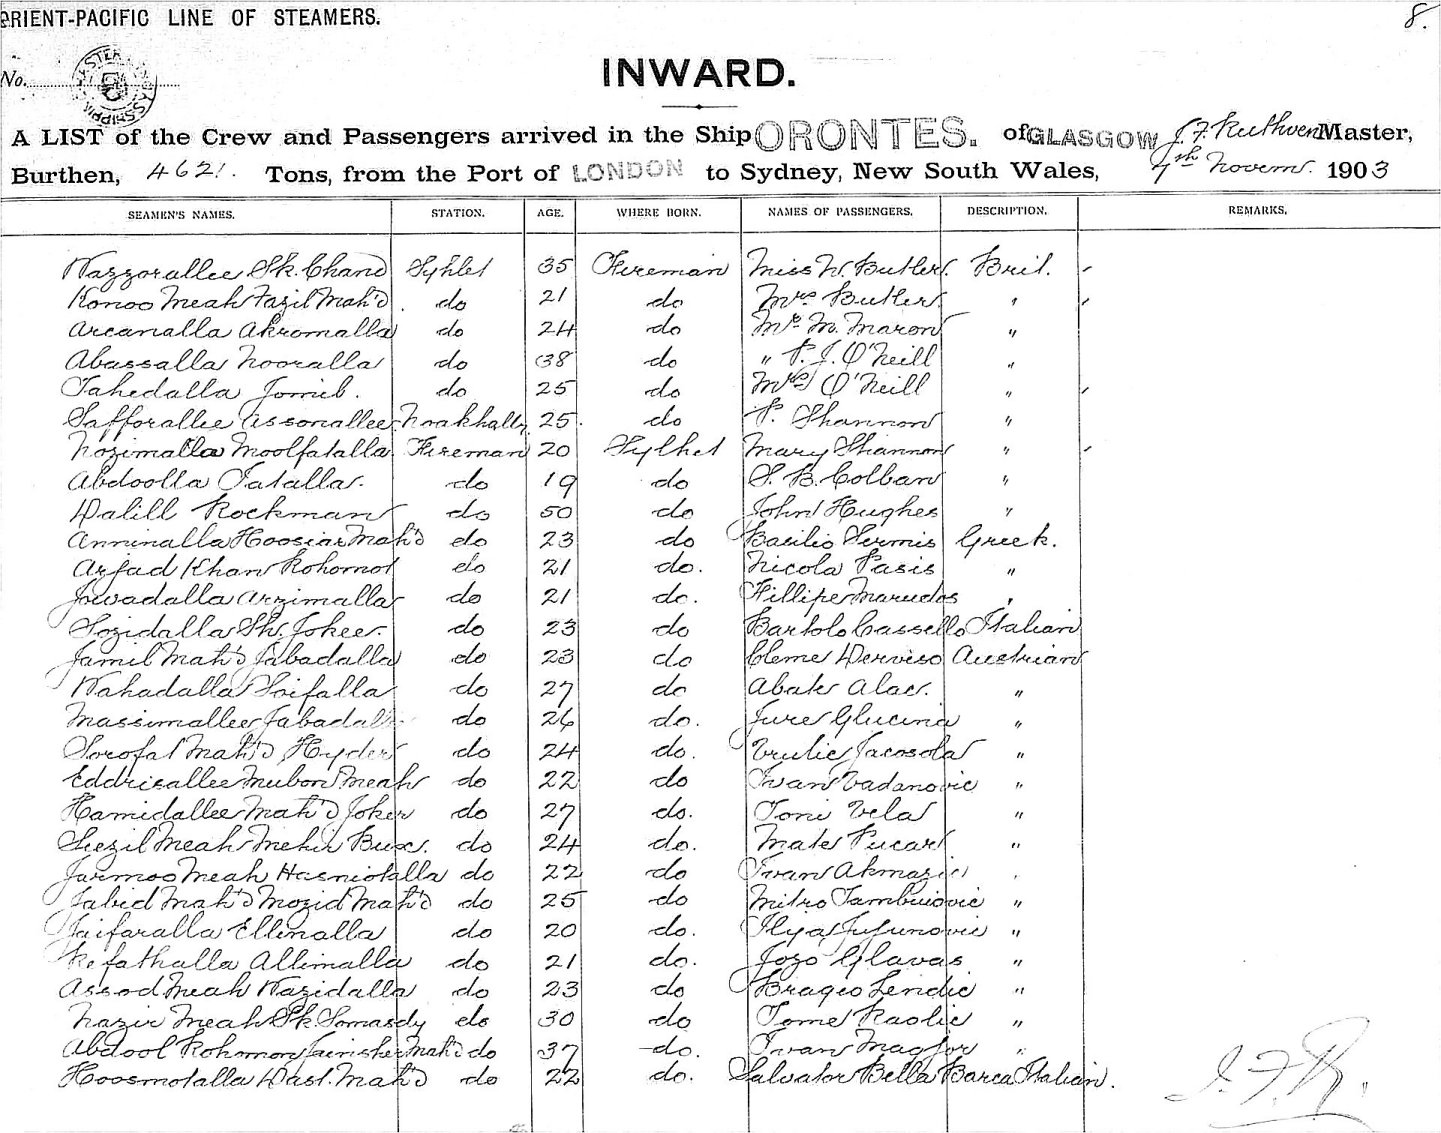 ORIENT-PACIFIC LINE OF STEAMERS. 8.
No.
INWARD.
A LIST of the Crew and Passengers arrived in the Ship ORONTES. of GLASGOW J. F. Ruthven Master,
Burthen, 4621. Tons, from the Port of LONDON to Sydney, New South Wales, 7th Novem. 1903
SEAMEN'S NAMES. STATION. AGE. WHERE BORN. NAMES OF PASSENGERS. DESCRIPTION. REMARKS.
Nazzorallee Sk. Chand Syhlet 35 Fireman Miss W. Butler. Brit.
Konoo Meah Fazil Mah'd do 21 do Mrs Butler "
Arcanalla Akromalla do 24 do Mr M. Maron "
Abassalla Nooralla do 38 do " P. J. O'Neill "
Tahedalla Jomil. do 25 do Mrs O'Neill "
Safforallee Assonallee. Noakhally 25. do P. Shannon "
Nozimalla Moolfatalla. Fireman 20 Sylhet Mary Shannon "
Abdoolla Tatalla. do 19 do S. B. Colban "
Dalill Rockman do 50 do John Hughes "
Anninalla Hoosian Mah'd do 23 do Basilio Sermis Greek.
Arfad Khan Rohomot do 21 do. Nicola Pasis "
Jowadalla Arzimalla do 21 do. Fillipe Marudas "
Sozidalla Sh. Jokee. do 23 do Bartolo Cassello Italian
Jamil Mah'd Jabadalla do 23 do Cleme Derviso Austrian
Wahadalla Soifalla do 27 do Abate Alac. "
Massimallee Jabadalla do 26 do. Jure Glucina "
Sorofat Mah'd Hyder do 24 do. Vrulic Jacosola "
Eddrisallee Mubon Meah do 22 do Ivan Vadanovic "
Hamidallee Mah'd Joker do 27 do. Toni Vela "
Shezil Meah Mehir Bux. do 24 do. Mate Pucar "
Jurmoo Meah Hasniotalla do 22 do Ivan Akmazic
Jabid Mah'd Mozid Mah'd do 25 do Mitro Tambuiovic "
Jaifaralla Ellimalla do 20 do. Ilya Jujunovic "
Kefathalla Allimalla do 21 do. Jozo Glavas "
Assod Meah Wazidalla do 23 do Bragio Lendic "
Nazir Meah Sk. Somasdy do 30 do Tome Raolic "
Abdool Rohomon Jainsher Mah'd do 37 do. Ivan Magjor "
Hoosmotalla Dast. Mah'd do 22 do. Salvator Bella Barca Italian.
J. F. R.